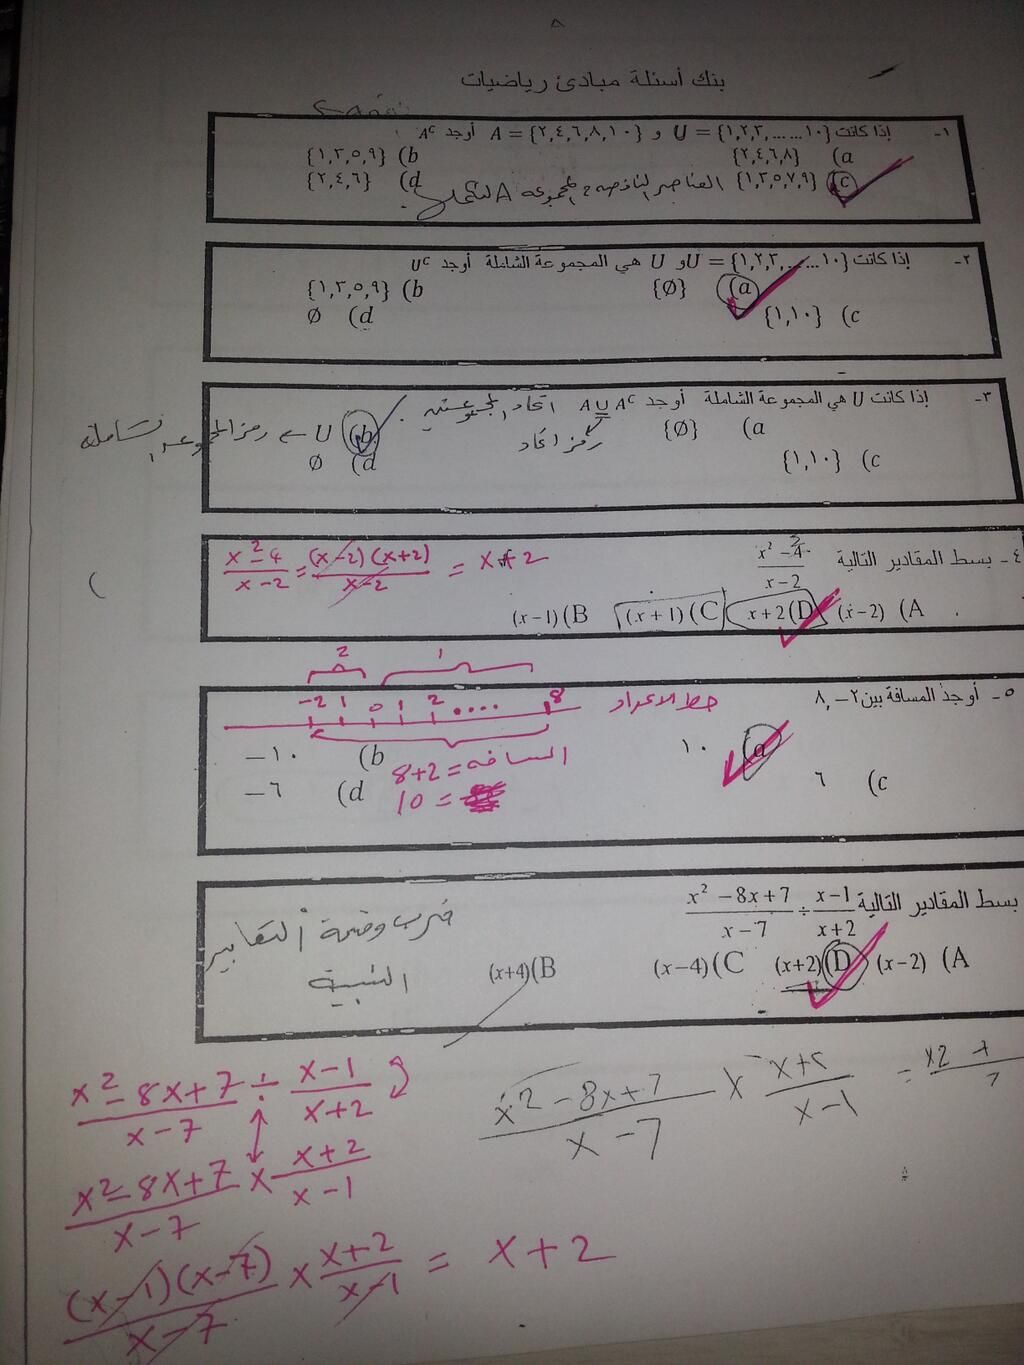 ٨
بنك أسئلة مبادئ رياضيات
١- إذا كانت U = {١,٢,٣,......١٠} و A = {٢,٤,٦,٨,١٠} أوجد Aᶜ
a) {٢,٤,٦,٨} b) {١,٣,٥,٩}
c) {١,٣,٥,٧,٩} العناصر الناقصه المجموعه A d) {٢,٤,٦}
٢- إذا كانت U = {١,٢,٣,......١٠} و U هي المجموعة الشاملة أوجد Uᶜ
a) {∅} b) {١,٣,٥,٩}
c) {١,١٠} d) ∅
٣- إذا كانت U هي المجموعة الشاملة أوجد A ∪ Aᶜ اتحاد المجموعتين
a) {∅} رمز اتحاد b) U ← رمز المجموعه الشامله
c) {١,١٠} d) ∅
٤- بسط المقادير التالية (x² − 4)/(x − 2)
(x² − 4)/(x − 2) = (x − 2)(x + 2)/(x − 2) = x + 2
A) (x − 2) D) x + 2 C) (x + 1) B) (x − 1)
2 1
٥- أوجد المسافة بين ٢−, ٨
خط الاعداد −2 1 0 1 2 .... 8
a) ١٠ b) −١٠
المسافه = 8+2
= 10
c) ٦ d) −٦
بسط المقادير التالية (x² − 8x + 7)/(x − 7) ÷ (x − 1)/(x + 2)
ضرب وقسمة التعابير
النسبية
A) (x − 2) D) (x + 2) C) (x − 4) B) (x + 4)
(x² − 8x + 7)/(x − 7) ÷ (x − 1)/(x + 2)
(x² − 8x + 7)/(x − 7) × (x + 2)/(x − 1) =
(x² − 8x + 7)/(x − 7) × (x + 2)/(x − 1)
(x − 1)(x − 7)/(x − 7) × (x + 2)/(x − 1) = x + 2